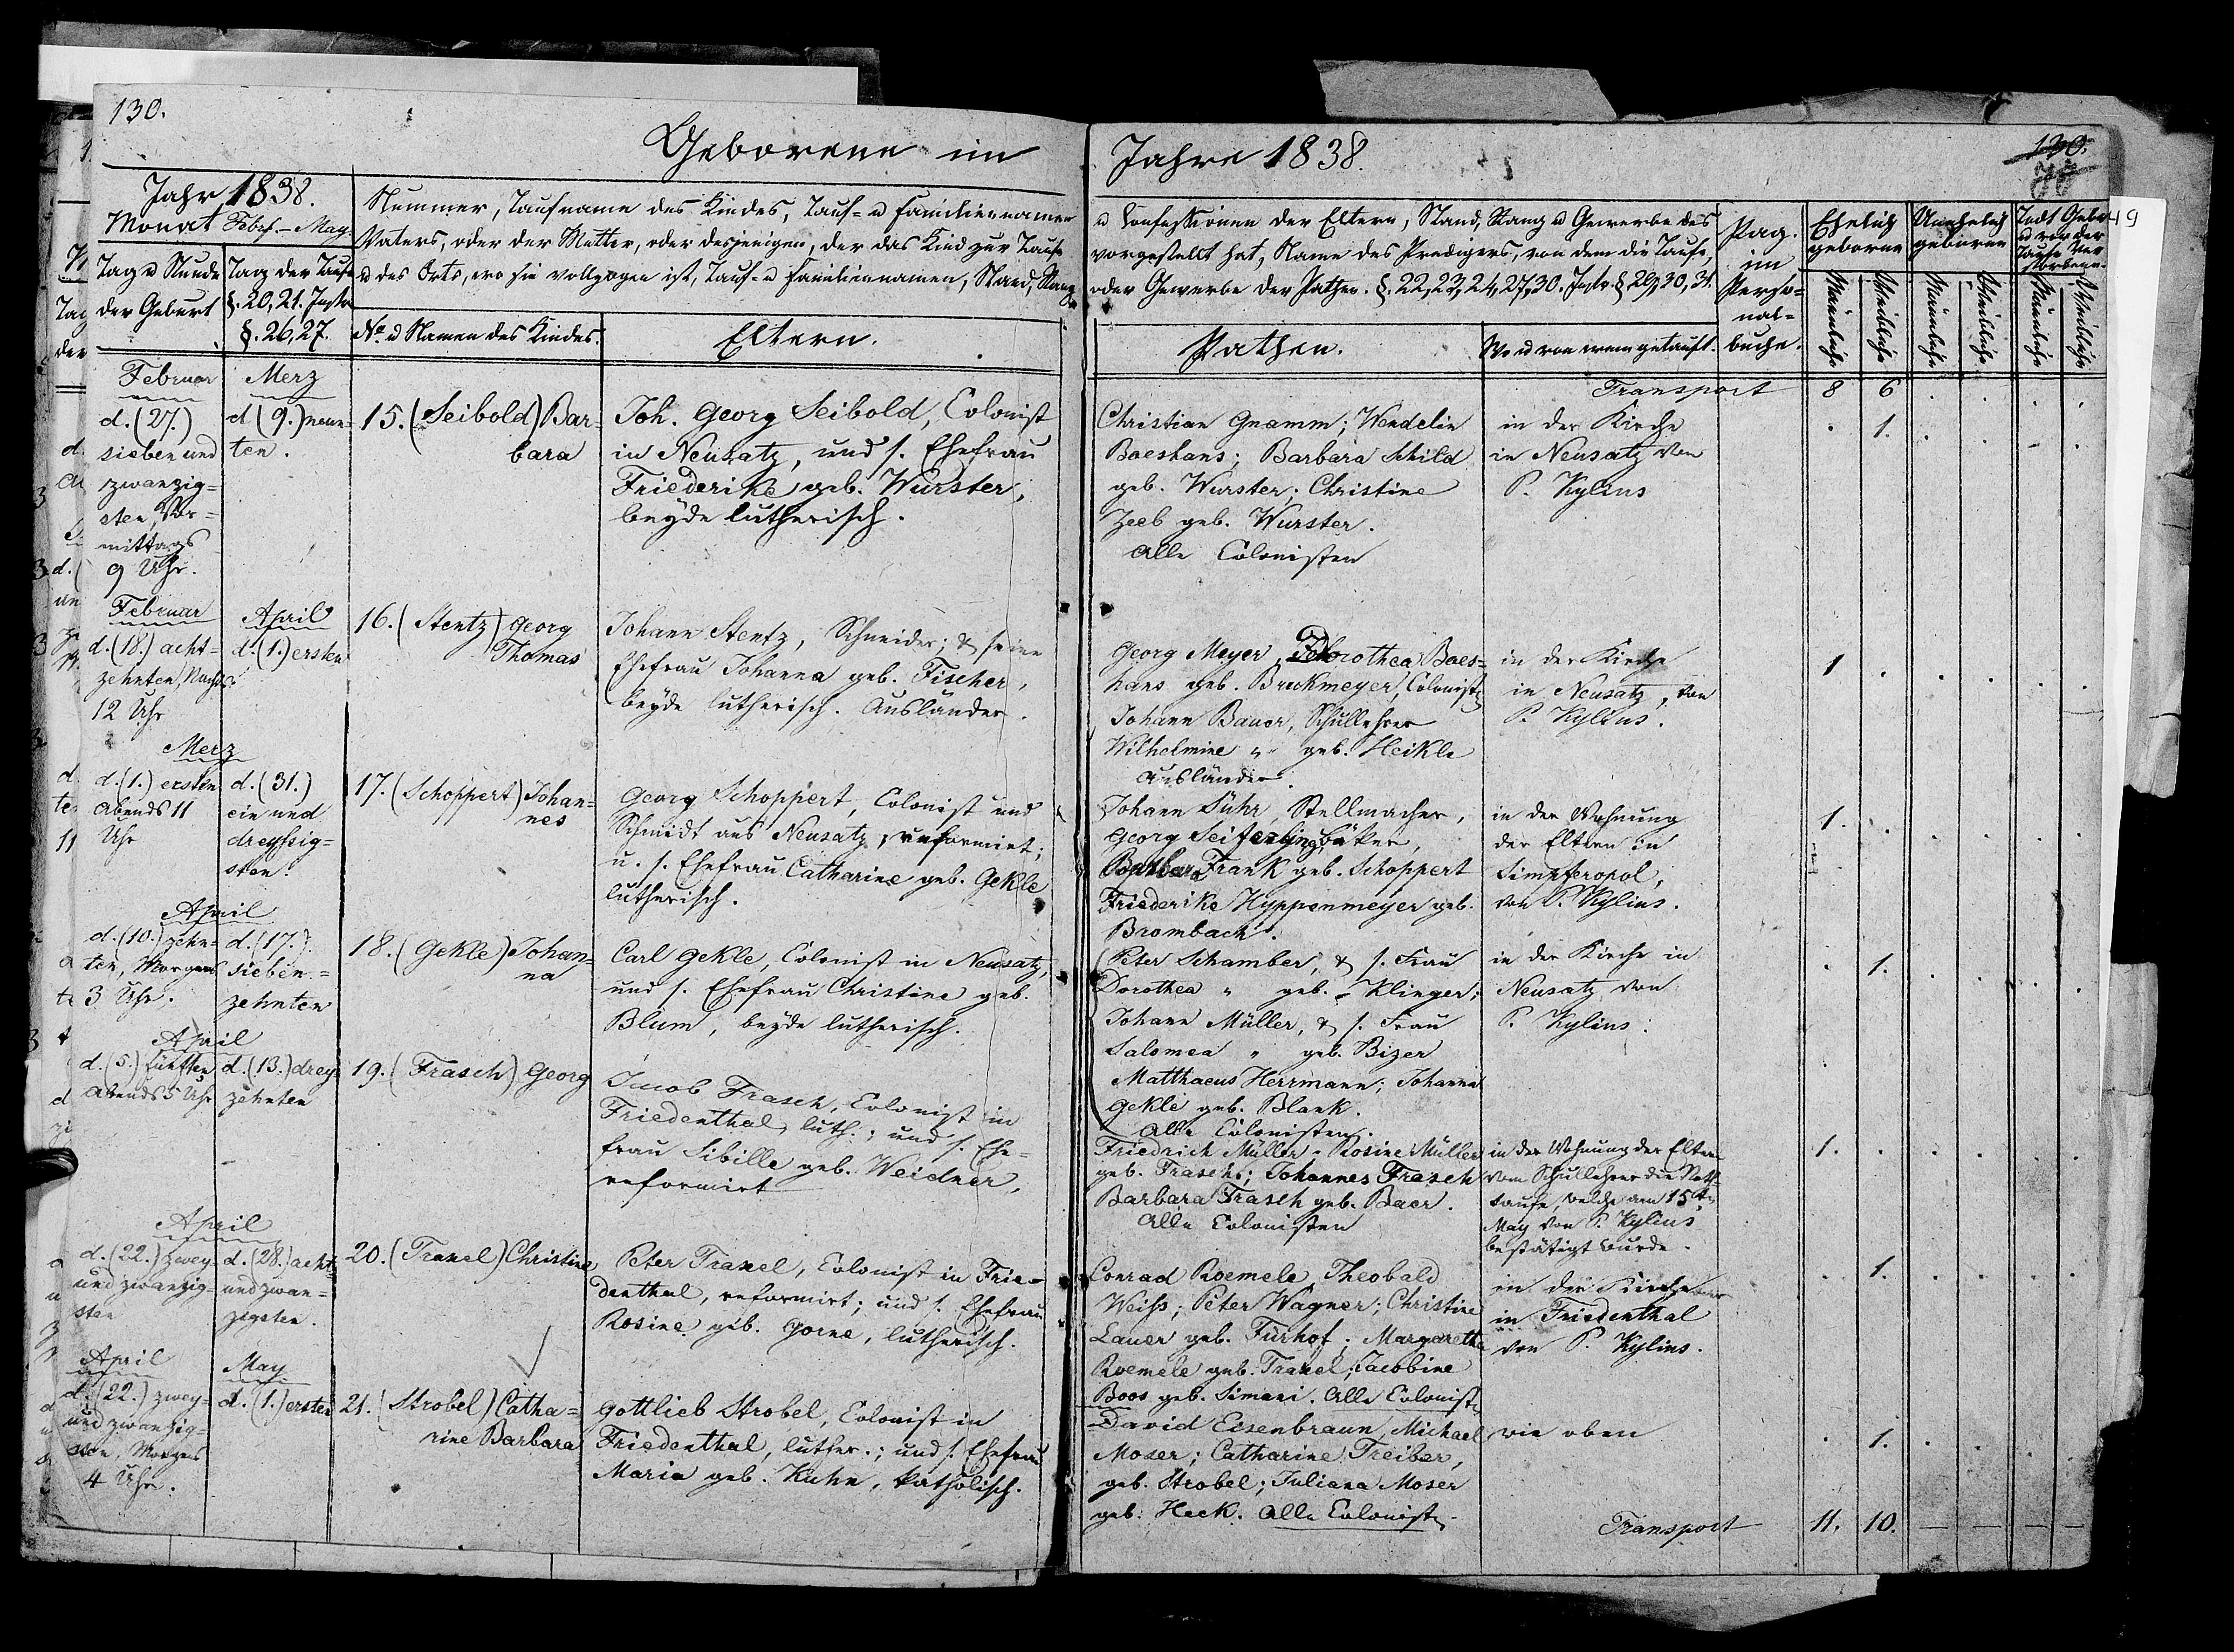 130.
Geborene im
Jahre 1838.
130.
49
Jahr 1838.
Monat Febr. – May.
Tag u Stunde
der Geburt
Tag der Taufe
§. 20, 21. Instr.
§. 26, 27.
Nummer, Taufname des Kindes, Tauf- u Familiennamen
Vaters, oder der Mutter, oder desjenigen, der das Kind zur Taufe
u des Orts, wo sie vollzogen ist, Tauf- u Familiennamen, Stand, Rang
No u Namen des Kindes.
Eltern.
u Confessionen der Eltern, Stand, Rang u Gewerbe des
vorgestellt hat, Name des Predigers, von dem die Taufe,
oder Gewerbe der Pathen. §. 22, 23, 24, 27, 30. Instr. § 29, 30, 31.
Pathen.
Wo u von wem getauft.
Pag.
im
Perso=
nal=
buche.
Ehelich
geborne
Unehelich
geborene
Todt Gebo
u vor der
Taufe Ver
storbene.
Männliche
Weibliche
Männliche
Weibliche
Männliche
Weibliche
Transport 8 6
Februar
d. (27.)
sieben und
zwanzig=
sten, Vor=
mittags
9 Uhr.
Merz
d (9.) neun=
ten.
15. (Seibold) Bar=
bara
Joh. Georg Seibold, Colonist
in Neusatz, und s. Ehefrau
Friederike, geb. Wurster,
beyde lutherisch.
Christian Gnamm; Wendelin
Baeshans; Barbara Schild
geb. Wurster; Christine
Zeeb geb. Wurster.
Alle Colonisten
in der Kirche
in Neusatz von
P. Kylius
1.
Februar
d. (18.) acht=
zehnten, Nachts
12 Uhr
April
d. (1.) ersten
16. (Stentz) Georg
Thomas
Johann Stentz, Schneider; & seine
Ehefrau Johanna geb. Fischer,
beyde lutherisch. Ausländer.
Georg Meyer, Dorothea Baes=
hans geb. Breckmeyer, Colonist
Johann Bauer, Schullehrer
Wilhelmine " geb. Heikle
Ausländer.
in der Kirche
in Neusatz, von
P. Kylius.
1
Merz
d. (1.) ersten
Abends 11
Uhr
d. (31.)
ein und
dreyssig=
sten.
17. (Schoppert) Johan=
nes
Georg Schoppert, Colonist und
Schmidt aus Neusatz, reformirt;
u. s. Ehefrau Catharine geb. Gekle
lutherisch.
Johann Sühr, Stellmacher,
Georg Seiferling, bäker,
Barbara Frank geb. Schoppert
Friederike Hyppenmeyer geb.
Brombach.
in der Wohnung
der Eltern in
Simpferopol,
von P. Kylius.
1.
April
d. (10.) zehn=
ten, Morgens
3 Uhr.
d. (17.)
sieben=
zehnten
18. (Gekle) Johan=
na
Carl Gekle, Colonist in Neusatz,
und s. Ehefrau Christine geb.
Blum, beyde lutherisch.
Peter Schamber, & s. Frau
Dorothea " geb. Klinger;
Johann Müller, & s. Frau
Salomea " geb. Bizer
Matthaeus Herrmann; Johanna
Gekle geb. Blank.
Alle Colonisten.
in der Kirche in
Neusatz von
P. Kylius.
1.
April
d. (5.) fünften
Abends 5 Uhr
d. (13.) drey
zehnten
19. (Frasch) Georg
Jacob Frasch, Colonist in
Friedenthal, luth.; und s. Ehe=
frau Sibille geb. Weidner,
reformirt
Friedrich Müller, Rosine Müller
geb. Frasch; Johannes Frasch
Barbara Frasch geb. Baer.
Alle Colonisten
in der Wohnung der Eltern
vom Schullehrer die Noth=
taufe, welche am 15ten
May von P. Kylius
bestätigt wurde.
1.
April
d. (22.) zwey
und zwanzig=
sten
d. (28.) acht=
und zwan=
zigsten.
20. (Traxel) Christine
Peter Traxel, Colonist in Frie=
denthal, reformirt; und s. Ehefrau
Rosine geb. Gorne, lutherisch.
Conrad Roemele, Theobald
Weiss; Peter Wagner; Christine
Lauer geb. Fürhof; Margaretha
Roemele geb. Traxel; Jacobine
Boos geb. Simari. Alle Colonist
in der Kirche
in Friedenthal
von P. Kylius.
1.
April
d. (22.) zwey=
und zwanzig=
sten, Morgens
4 Uhr.
May
d. (1.) ersten
21. (Strobel) Catha=
rine Barbara
Gottlieb Strobel, Colonist in
Friedenthal, luther.; und s. Ehefrau
Maria geb. Kuhn, katholisch.
David Eisenbraun, Michael
Moser; Catharine Treiber,
geb. Strobel; Juliana Moser
geb. Heck. Alle Colonist
wie oben
1.
Transport 11. 10.